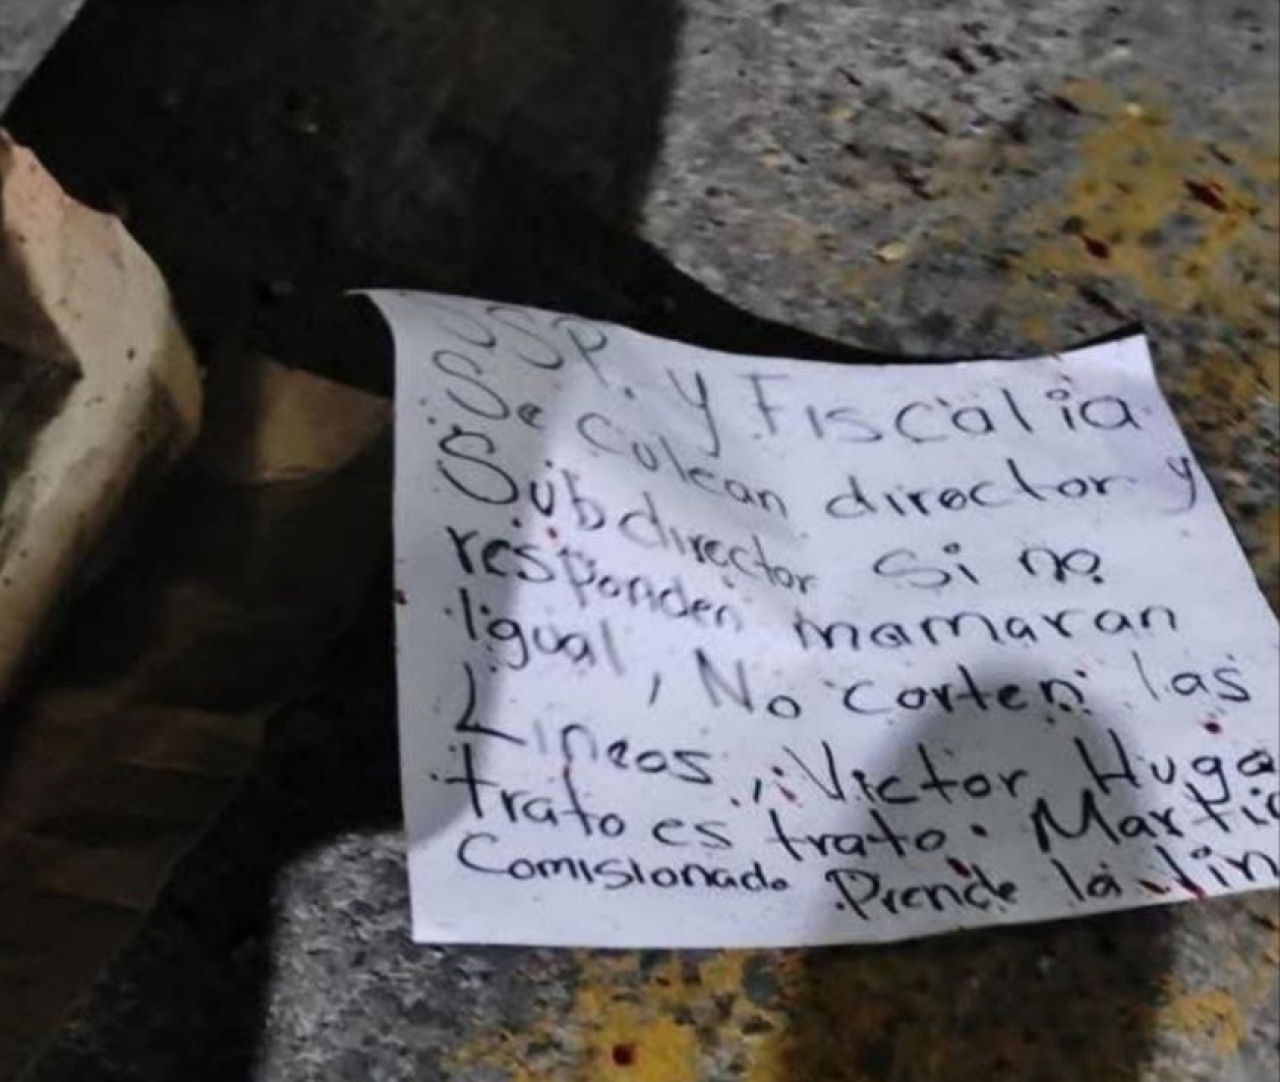 SSP. y Fiscalia
Se culean director y
Subdirector si no
responden mamaran
Igual, No corten las
Lineas, ¡Victor Hugo
trato es trato. Martic
Comisionado Prende la lin